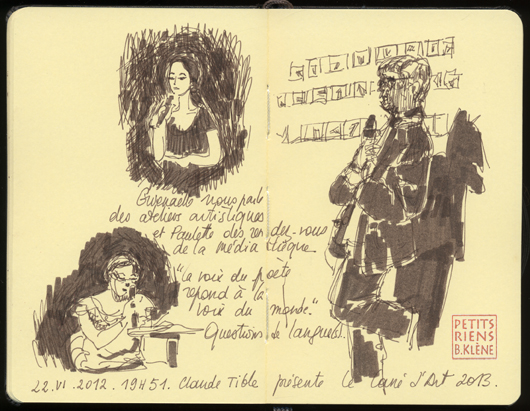 Gwenaelle nous parle
des ateliers artistiques
et Paulette des rendez-vous
de la médiathèque
"la voix du poète
répond à la
voix du monde."
Questions de langues.
PETITS
RIENS
B.KLÈNE
22.VI.2012. 19H51. Claude Tible présente le Carré d'Art 2013.